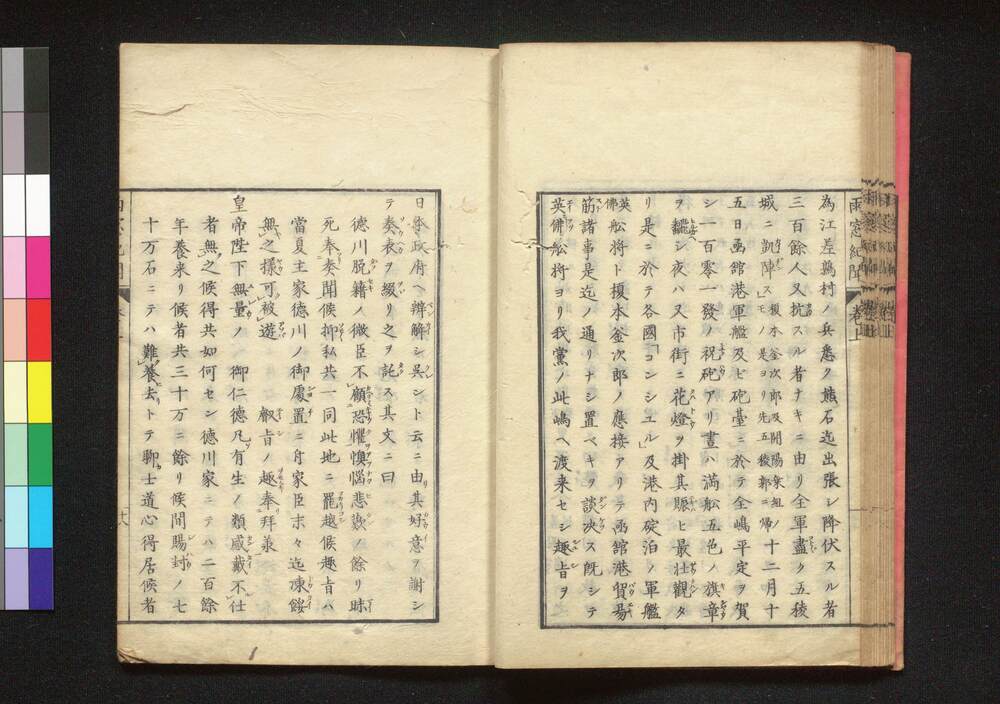 雨窓紀聞 巻上
為江差鶉村ノ兵悉ク熊石迄出張シ降伏スル者
三百餘人又抗スル者ナキニ由リ全軍盡ク五稜
城ニ凱陣ス榎本釜次郎及開陽乗組ノモノハ是ヨリ先五稜郭ニ帰ル十二月十
五日函館港軍艦及ビ砲臺ニ於テ全嶋平定ヲ賀
シ一百零一發ノ祝砲アリ晝ハ満舩五色ノ旗章
ヲ飜シ夜ハ又市街ニ花燈ヲ掛其賑ヒ最壮觀タ
リ是ニ於テ各國「コンシユル」及港内碇泊ノ軍艦
英佛舩将ト榎本釜次郎ノ應接アリテ函舘港貿昜
筋諸事是迄ノ通リナシ置ベキヲ談决ス既シテ
英佛舩将ヨリ我黨ノ此嶋ヘ渡来セシ趣旨ヲ
日本政府ヘ辨解シ呉ント云ニ由其好意ヲ謝シ
テ奏表ヲ綴リ之ヲ託ス其文ニ曰
徳川脱籍ノ微臣不顧恐懼懊惱悲歎ノ餘リ昧
死奉奏聞候抑私共一同此地ニ罷越候趣旨ハ
當夏主家徳川ノ御處置ニ付家臣末々迄凍餒
無之様可被遊 叡旨ノ趣奉拜承
皇帝陛下無量ノ御仁徳凡有生ノ類感戴不仕
者無之候得共如何セン徳川家ニテハ二百餘
年養来リ候者共三十万ニ餘リ候間賜封ノ七
十万石ニテハ難養去トテ聊士道心得居候者